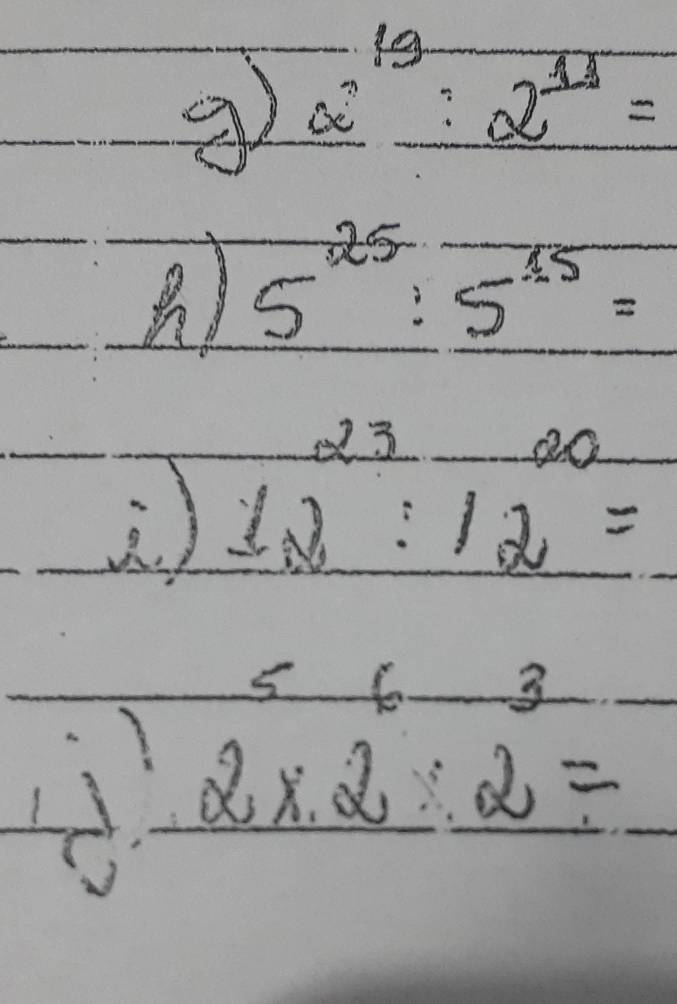 g) 2¹⁹ : 2¹¹ =
h) 5²⁵ : 5¹⁵ =
i) 12²³ : 12²⁰ =
j) 2⁵ x 2⁶ : 2³ =